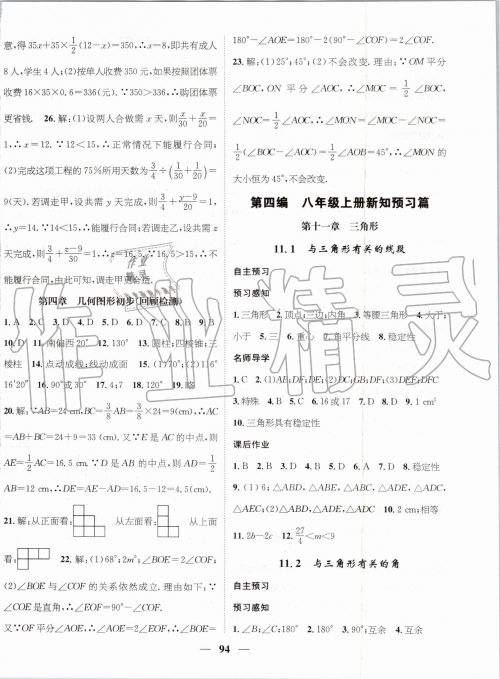 意,得35x+35×1/2(12-x)=350,∴x=8,即共有成人
8人,学生4人;(2)按单人收费350元,如按团体票
收费16×35×0.6=336(元).∵350>336,∴购团体票
更省钱. 26.解:(1)设两人合做需x天,则x/30+x/20=
1,∴x=12.∵12<15,∴正常情况下能履行合同;
(2)完成这项工程的75%所用天数为3/4÷(1/30+1/20)
=9(天).若调走甲,设共需y天完成,则3/4+(y-9)/20=1,
∴y=14.∵14<15,∴能履行合同;若调走乙,设共需z天
完成,则3/4+(z-9)/30=1,
能履行合同.由此可知,调走甲更合适.
第四章 几何图形初步(回顾检测)
1.A 2.C 3.D 4.D 5.D 6.D 7.B 8.C 9.B
10.D 11.南偏西20° 12.130° 13.圆柱;四棱锥;三
棱柱 14.点动成线;线动成面 15.(1)70°;(2)116°
16′20″ 16.90°或30° 17.4;7 18.120° 19.略
20.解:∵AB=24 cm,BC=3/8AB=3/8×24=9(cm),∴AC
=AB+BC=24+9=33(cm).又∵E是AC的中点,则
AE=1/2AC=16.5 cm.∵D是AB的中点,则AD=1/2
AB=12 cm,∴DE=AE-AD=16.5-12=4.5(cm).
21.解:从正面看: 从左面看: 从上面
看: 22.解:(1)68°;2m°;∠BOE=2∠COF;
(2)∠BOE与∠COF的关系依然成立.理由如下:∵
∠COE是直角,∴∠EOF=90°-∠COF.
又∵OF平分∠AOE,∴∠AOE=2∠EOF,∴∠BOE=
180°-∠AOE=180°-2(90°-∠COF)=2∠COF.
23.解:(1)25°;45°;(2)不会改变.理由:∵OM平分
∠BOC,ON平分∠AOC,∴∠MOC=1/2∠BOC,
∠NOC=1/2∠AOC,∴∠MON=∠MOC-∠NOC=
1/2(∠BOC-∠AOC)=1/2∠AOB=45°,∴∠MON的
大小恒为45°,不会改变.
第四编 八年级上册新知预习篇
第十一章 三角形
11.1 与三角形有关的线段
自主预习
预习感知
1.三角形 2.顶点;三边;内角 3.等腰三角形 4.大于;
小于 5.三 6.重心 7.角平分线 8.稳定性
名师导学
3.特殊 4.B 5.C 6.16或17 7.D 8.D 9.1 cm²
10.三角形具有稳定性
课后作业
1.B 2.B 3.D 4.A 5.D 6.B 7.D 8.稳定性
9.(1)6;△ABD,△ABE,△ABC,△ADE,△ADC,
11.2b-2c 12.27/4<m<9
11.2 与三角形有关的角
自主预习
预习感知
1.∠B;∠C;180° 2.180° 3.90°;互余 4.互余
94